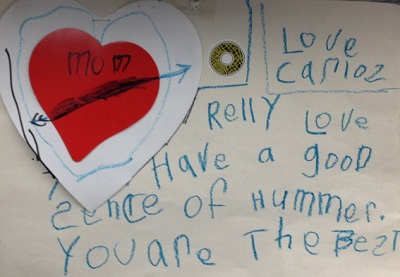 mom
Love
carloz
Relly Love
Have a good
zence of Hummer.
You are The Bezt